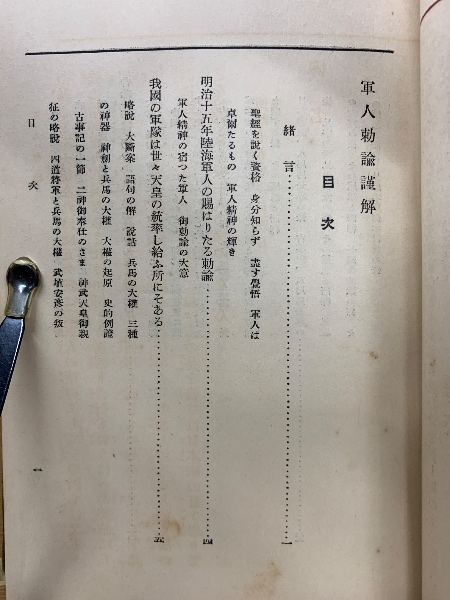 軍人勅諭謹解
目次
緒言…………………………一
聖經を說く資格 身分知らず 盡す覺悟 軍人は
卓爾たるもの 軍人精神の輝き
明治十五年陸海軍人の賜はりたる勅諭…………四
軍人精神の宿つた軍人 御勅諭の大意
我國の軍隊は世々天皇の統率し給ふ所にそある…………五
略說 大斷案 語句の解 說話 兵馬の大權 三種
の神器 神劍と兵馬の大權 大權の起原 史的例證
古事記の一節 二神御奉仕のさま 神武天皇御親
征の略說 四道將軍と兵馬の大權 武埴安彥の叛
目次 一